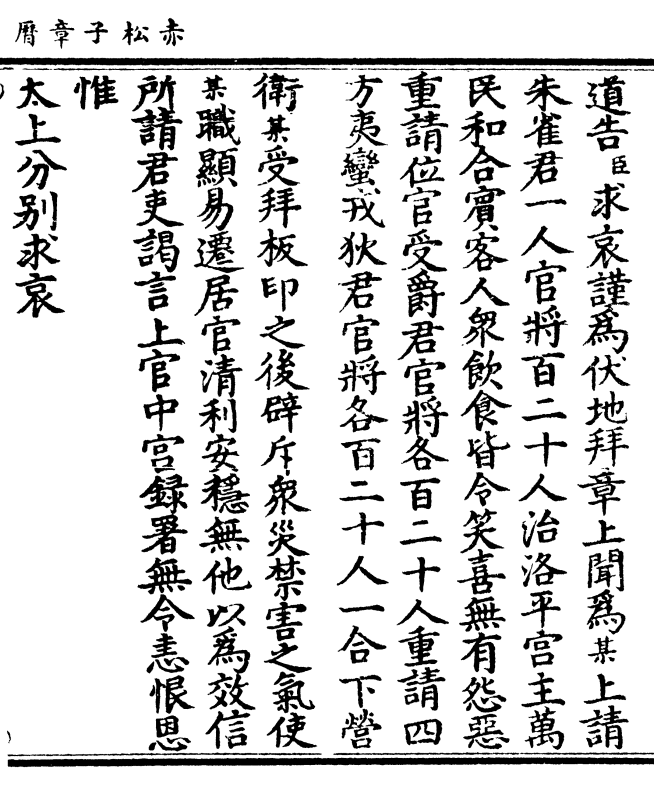 赤松子章曆
道告臣求哀謹爲伏地拜章上聞爲某上請
朱雀君一人官將百二十人治洛平宫主萬
民和合賓客人衆飲食皆令笑喜無有怨惡
重請位官受爵君官將各百二十人重請四
方夷蠻戎狄君官將各百二十人一合下營
衛某受拜板印之後辟斥衆災禁害之氣使
某職顯易遷居官清利安穩無他以爲效信
所請君吏謁言上官中宫録署無令恚恨恩
惟
太上分别求哀